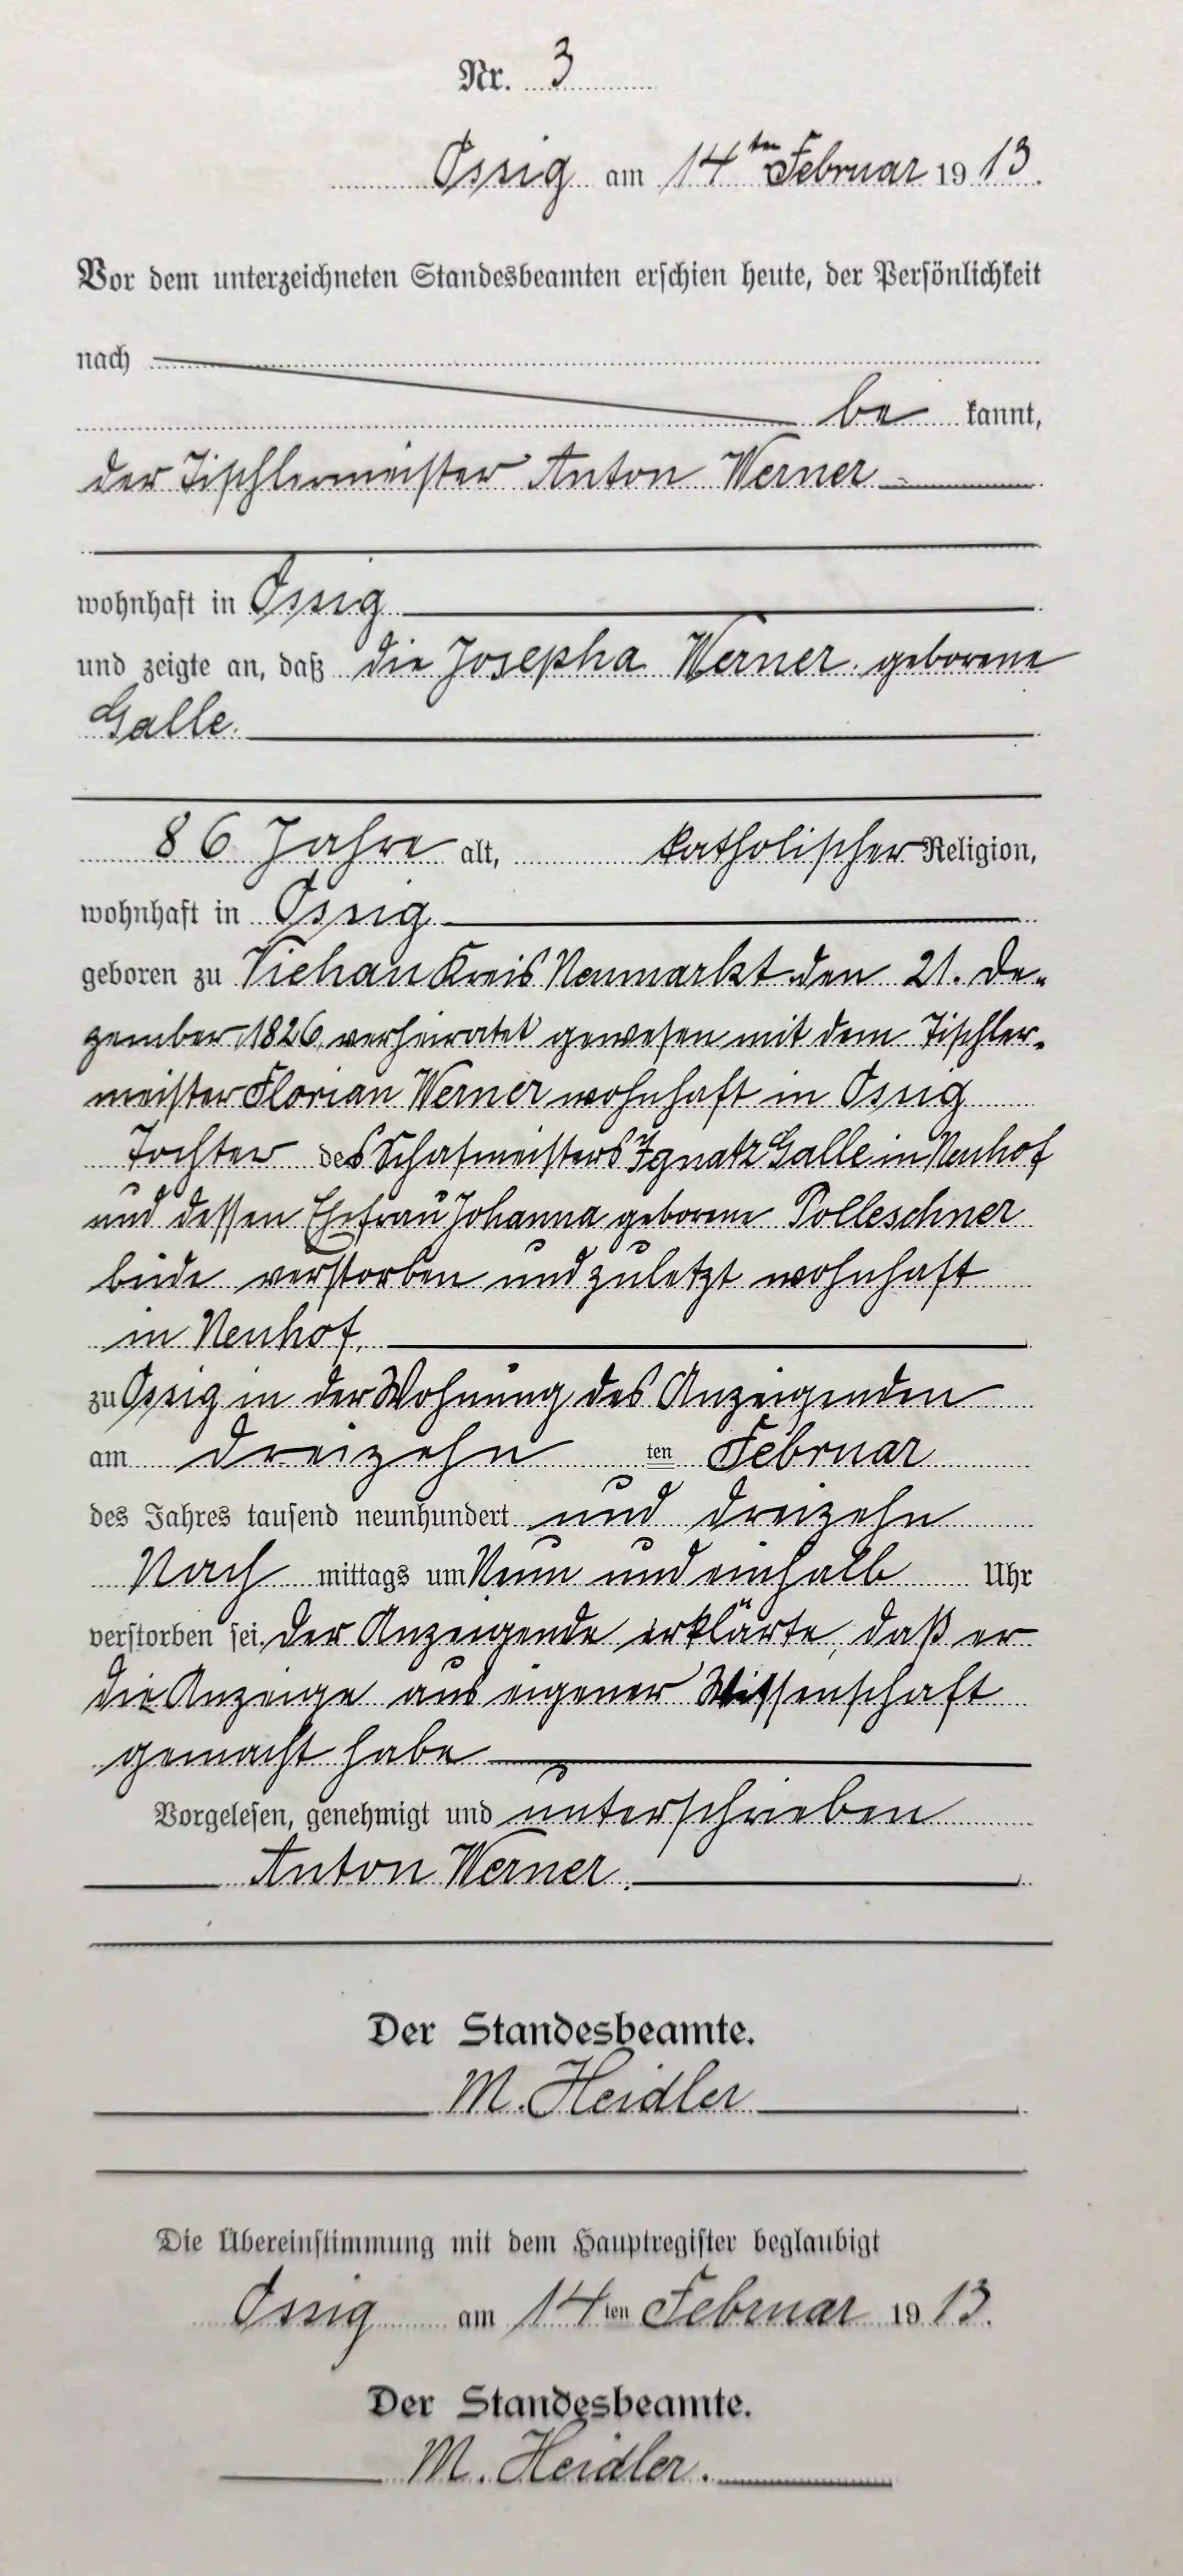 Nr. 3
Ossig am 14ten Februar 1913.
Vor dem unterzeichneten Standesbeamten erschien heute, der Persönlichkeit
nach
be kannt,
der Tischlermeister Anton Werner
wohnhaft in Ossig
und zeigte an, daß die Josepha Werner geborene
Galle
86 Jahre alt, katholischer Religion,
wohnhaft in Ossig
geboren zu Viehau Kreis Neumarkt den 21. De-
zember 1826, verheiratet gewesen mit dem Tischler-
meister Florian Werner wohnhaft in Ossig
Tochter des Schafmeisters Ignatz Galle in Neuhof
und dessen Ehefrau Johanna geborene Polleschner
beide verstorben und zuletzt wohnhaft
in Neuhof,
zu Ossig in der Wohnung des Anzeigenden
am dreizehn ten Februar
des Jahres tausend neunhundert und dreizehn
Nach mittags um Neun und einhalb Uhr
verstorben sei. Der Anzeigende erklärte, daß er
die Anzeige aus eigener Wissenschaft
gemacht habe
Vorgelesen, genehmigt und unterschrieben
Anton Werner.
Der Standesbeamte.
M. Heidler
Die Übereinstimmung mit dem Hauptregister beglaubigt
Ossig am 14ten Februar 1913.
Der Standesbeamte.
M. Heidler.